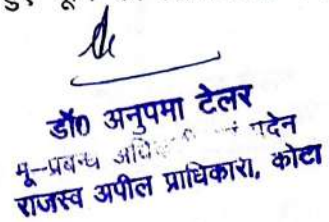 डॉ0 अनुपमा टेलर
भू-प्रबन्ध पदेन
राजस्व अपील प्राधिकारी, कोटा